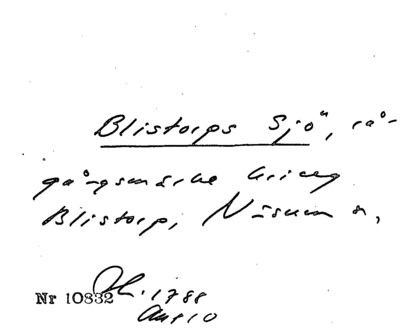 Blistorps Sjö", rå-
gångsmärke kring
Blistorp, Näsum s,
Nr 10832 1788